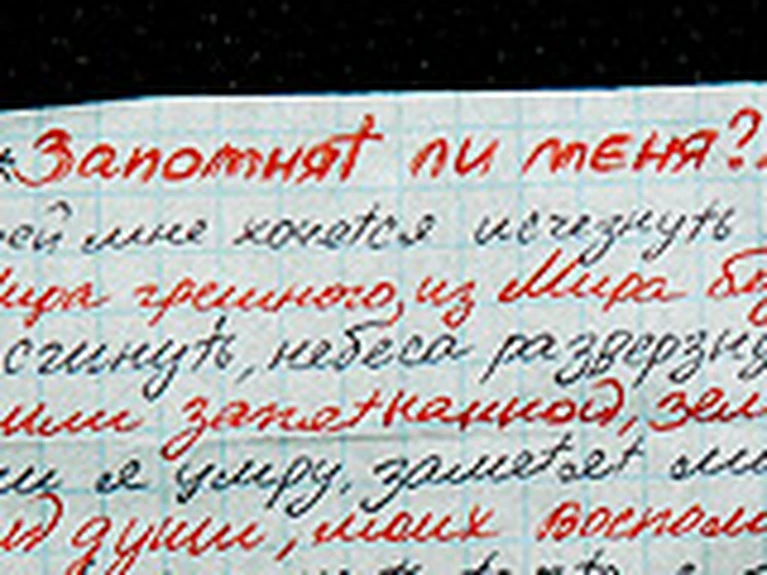 *Запомнят ли меня?
ей мне хочется исчезнуть
Мира грешного, из Мира
сгинуть, небеса разверзну
или запятнанной, зем
я умру, заметят
души, моих воспом